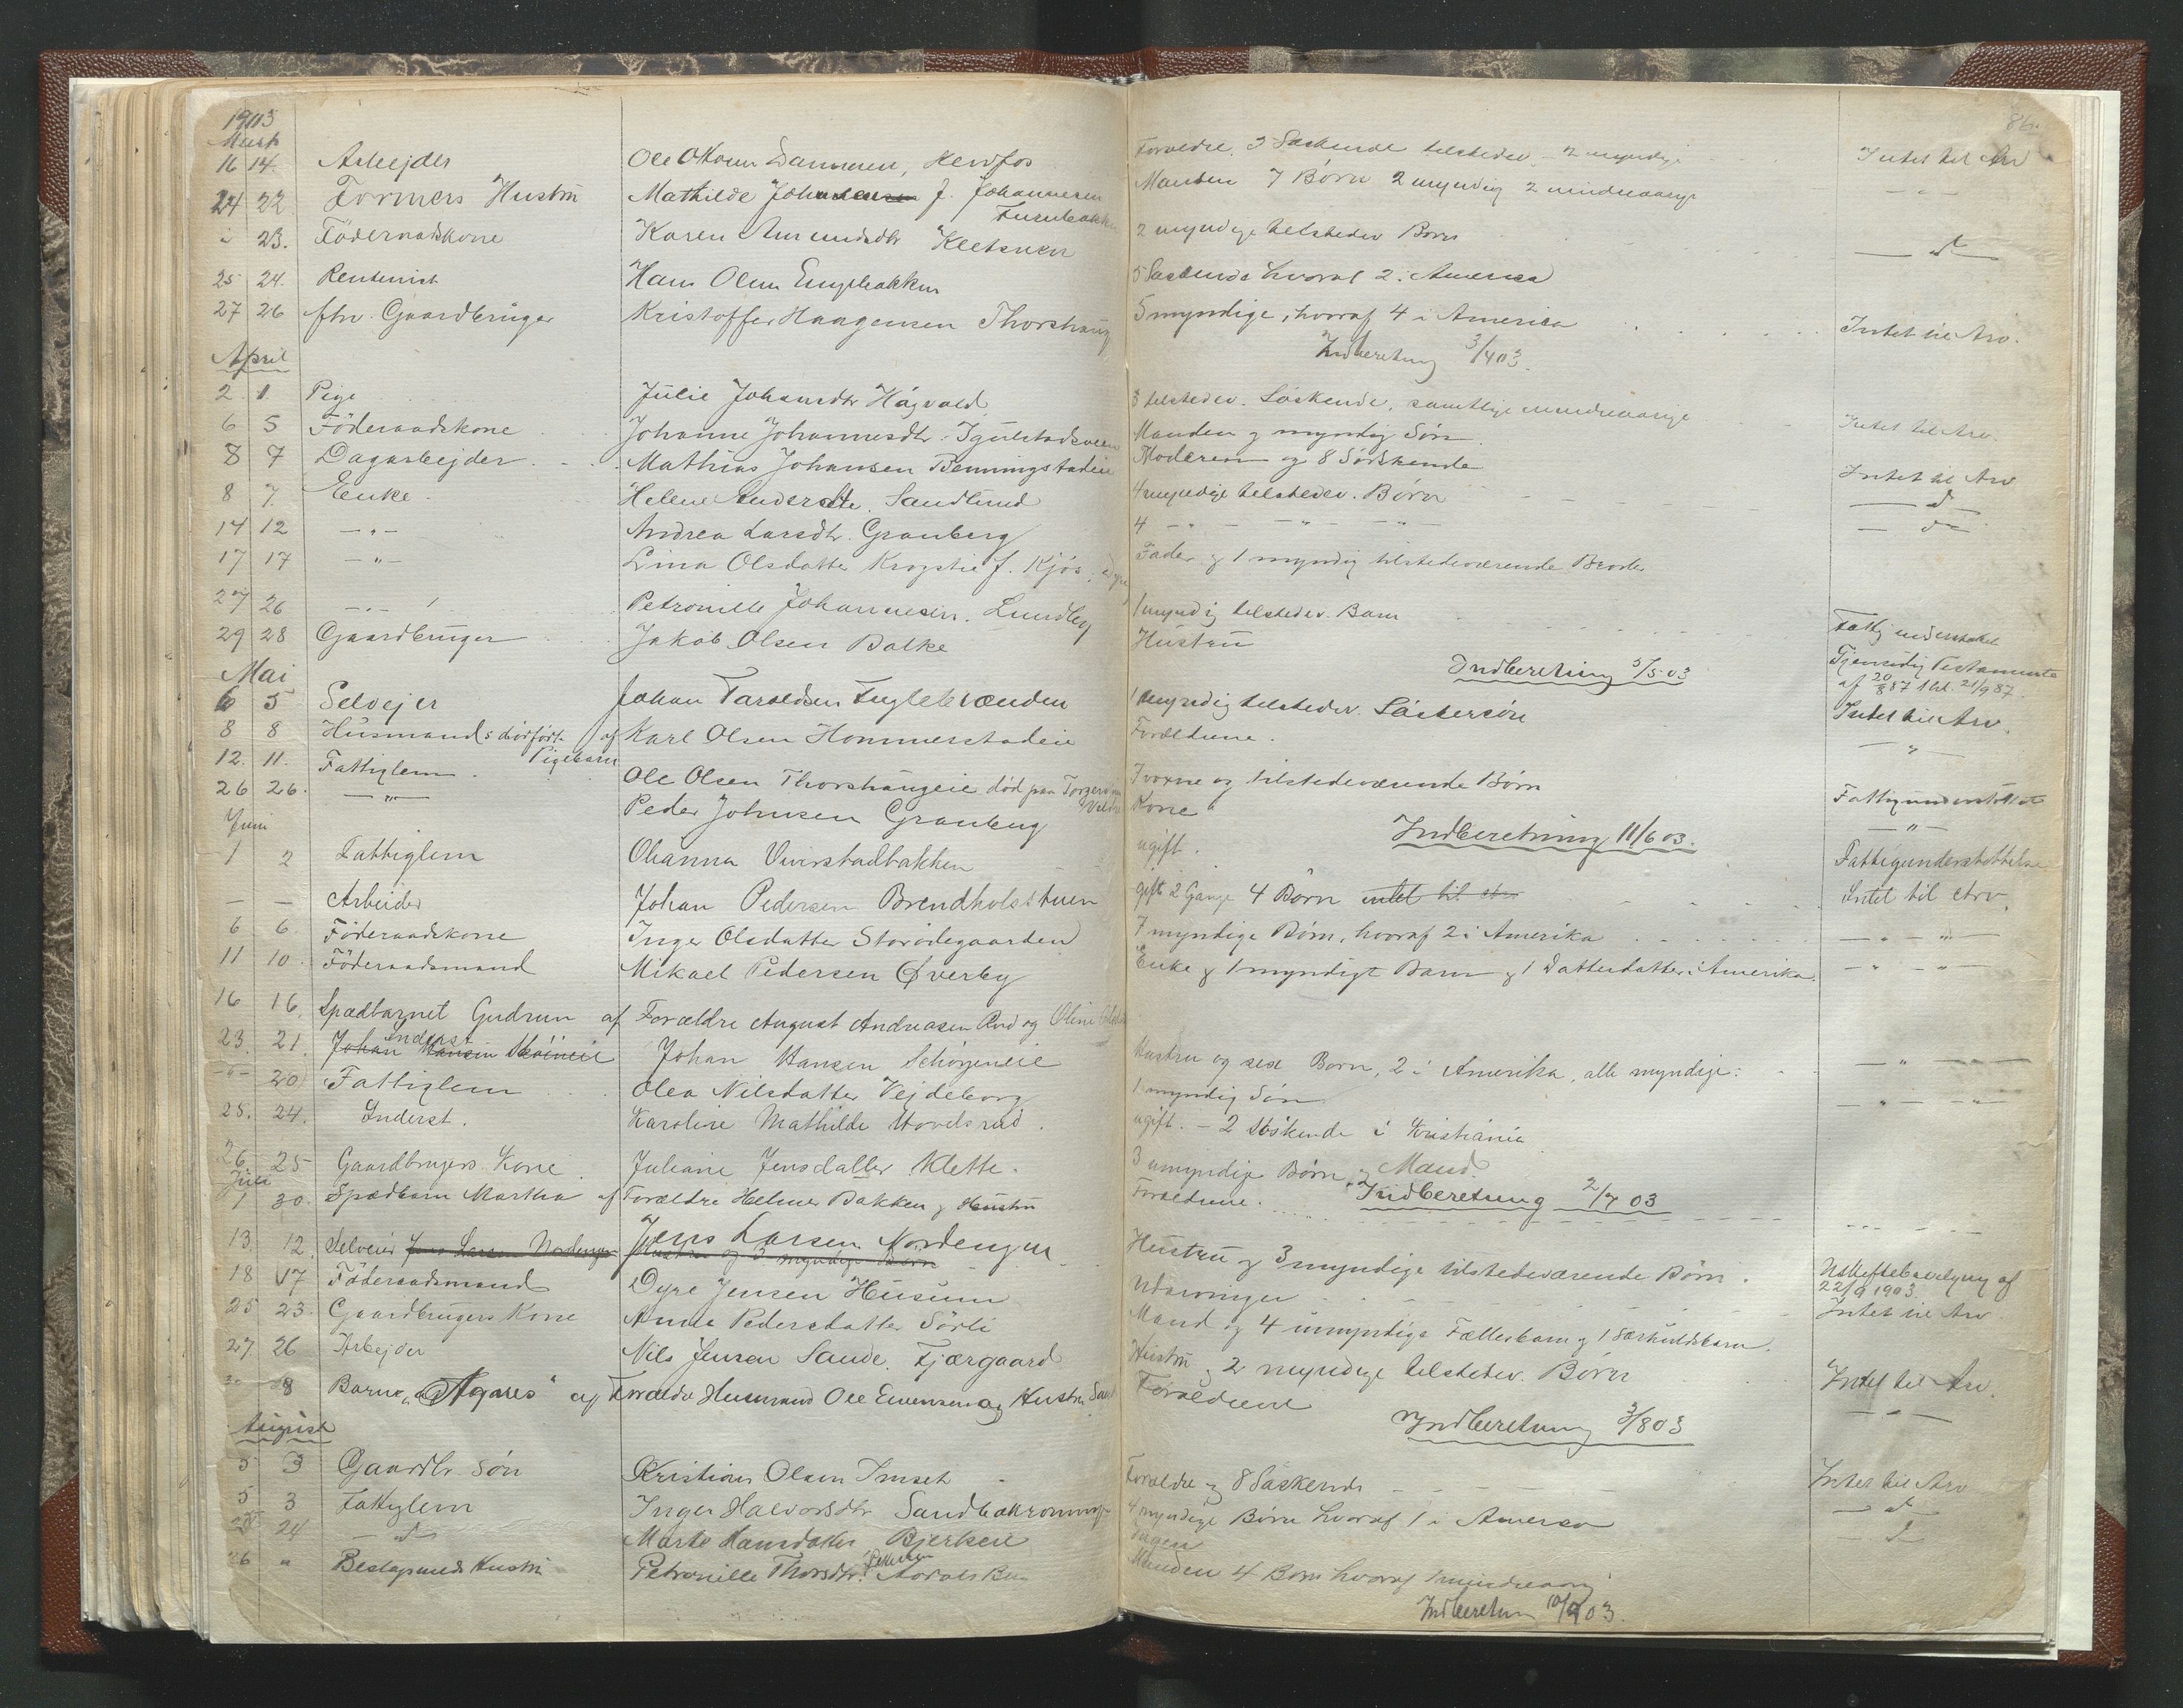 1903
86.
Marts
16 14. Arbejder Ole Ottosen, Forældre, 3 Søskende tilstedev. - 2 myndige Intet til Arv
24 22. Formers Hustru Mathilde f. Johannesen Manden 7 Børn 2 myndig 2 mindreaarige - " -
Furubakken
" 23. Föderaadskone Karen Amundsdtr Kletsveen 2 myndige tilstedev Børn — d —
25 24. Rentenist Hans Olsen Engebakken 5 Søskende hvoraf 2 i America
27 26 fhv. Gaardbruger Kristoffer Haagensen Thorshaug 5 myndige, hvoraf 4 i America Intet til Arv.
Indberetning 3/4 03.
April
2. 1. Pige Julie Johansdtr Hågvald 3 tilstedev. Söskende, samtlige mindreaarige Intet til Arv.
6 5 Föderaadskone Johanne Johannesdtr. Manden og myndig Sön.
8 7 Dagarbejder Mathias Johansen Benningstadeie Moderen og 8 Sødskende Intet til Arv
8 7. Enke Helene Andersdtr. Sandlund 4 myndige tilstedev. Börn — d —
14 12 — " — Andrea Larsdtr. Granberg 4 — " — — " — — " — — d —
17 17 — " — Lina Olsdatter Krogstie f. Kjös, Fader og 1 myndig tilstedeværende Broder
27 26 — " — Petronille Johannesen. Lundby 1 myndig tilstedev. Barn Fattig understøttet
29 28 Gaardbruger Jakob Olsen Balke Hustru Gjensidig Testamente
Indberetning 3/5 03 af 20/8 87 thl. 21/9 87.
Mai
6 5 Selvejer Johan Taraldsen Fuglebrænden 1 myndig tilstedev. Söstersön Intet til Arv.
8 8 Husmands dödfödt Pigebarn af Karl Olsen Hommerstadeie Forældrene. — " —
12. 11. Fattiglem. Ole Olsen Thorshaugeie död paa voxne og tilstedeværende Börn Fattigunderstöttet
26 26. — " — Peder Johnsen Granberg Kone — " —
Juni Indberetning 11/6 03.
1 2 Fattiglem Oleanna Vivestadbakken ugift. Fattigunderstøttelse
— — Arbeider Johan Pedersen Brendholsstuen gift 2 Gange 4 Børn intet til Arv Intet til Arv.
6 6. Föderaadskone Inger Olsdatter Storödegaarden 7 myndige Børn, hvoraf 2 i Amerika — " — " —
11 10. Föderaadsmand Mikael Pedersen Øverby Enke og 1 myndigt Barn og 1 Datterdatter i Amerika. — " — " —
16 16. Spædbarnet Gudrun af Forældre August Andreasen Rud og Oline
23. 21. Johan Hansen Inderst Johan Hansen Schöyeneie Hustru og sex Børn, 2 i Amerika, alle myndige: — " —
— " — 20 Fattiglem Olea Nilsdatter Vejdeborg 1 myndig Sön — " —
25. 24. Inderst. Karoline Mathilde Hovelsrud. ugift. - 2 Söskende i Kristiania
26 25 Gaardbrugers Kone Juliane Jensdatter Klette. 3 umyndige Börn, og Mand
Juli
1 30. Spædbarn Martha af Forældre Helmer Bakken og Hustru Forældrene. Indberetning 2/7 03
13. 12. Selveier Jens Larsen Nordengen Jens Larsen Nordengen Hustru og 3 myndige tilstedeværende Börn. Uskiftebevilgning af
Hustru og 3 myndige Børn 22/9 1903.
18 17 Föderaadsmand Dyre Jensen Husum Udarvinger Intet til Arv
25 23. Gaardbrugers Kone Anna Pedersdatter Sörli Mand og 4 umyndige Fællesbarn og 1 Særkuldsbarn.
27 26 Arbejder Nils Jensen Sande. Fjærgaard Hustru og 2 myndige tilstedev. Börn Intet til Arv.
8 Barnet "Agnes" af Forældre Husmand Ole Evensen og Hustru Forældrene — " —
Indberetning 3/8 03
August
5 3 Gaardbr Sön Kristian Olsen Imset Forældre og 8 Söskende Intet til Arv
5 3 Fattiglem Inger Halvorsdtr 4 myndige Börn hvoraf 1 i America — d —
24 — d — Marte Hansdatter Bjerkeie Ingen d
26 " Hustru Petronille Thorsdtr. Manden 4 Børn hvoraf 1 mindreaarig
Indberetn 10/9 03.